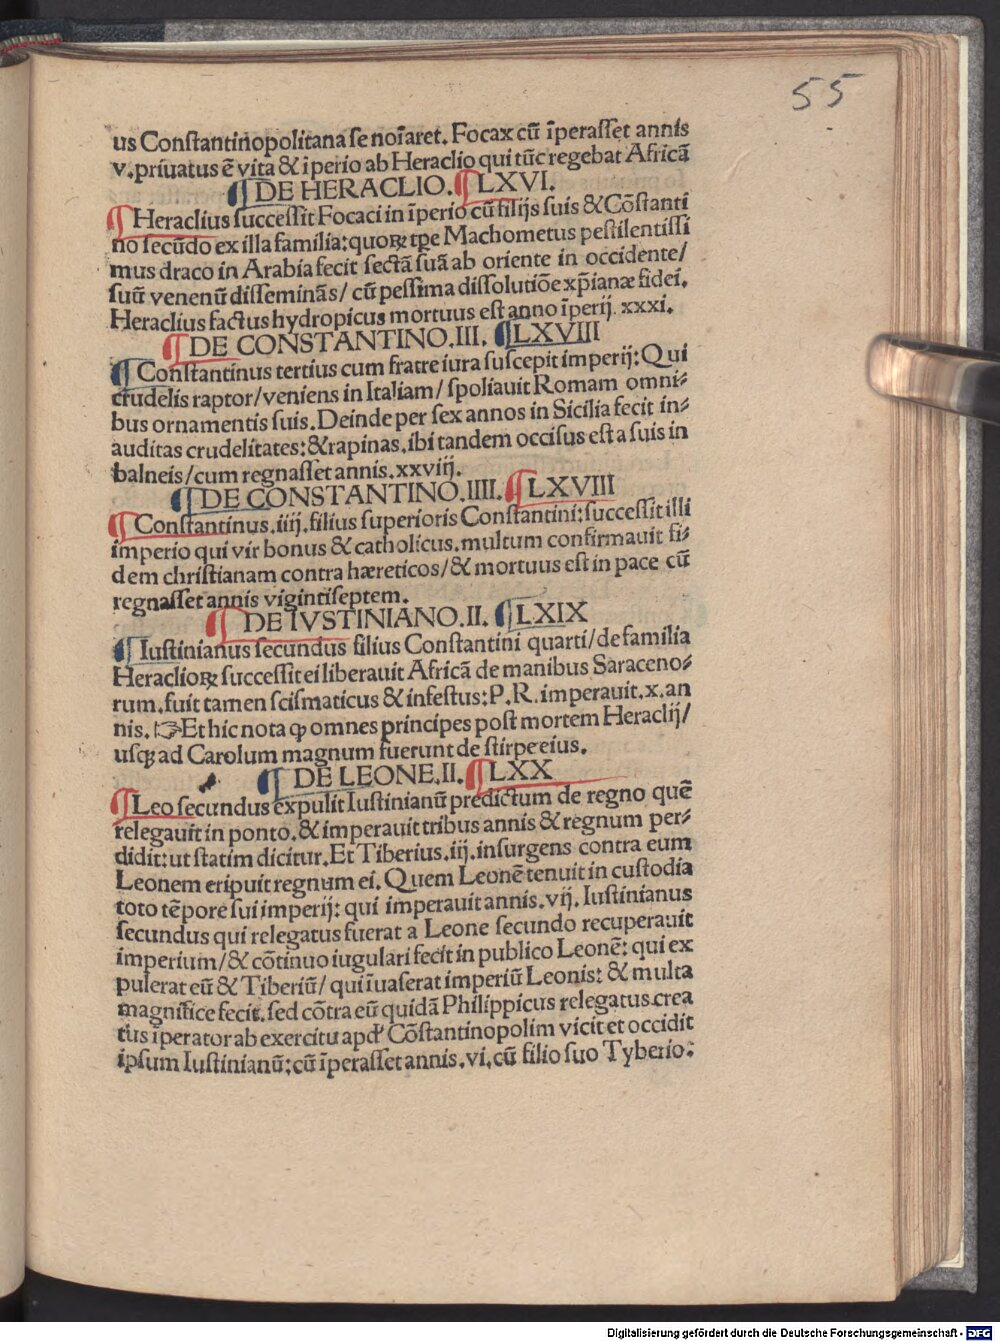 55
us Conſtantinopolitana ſe noīaret. Focax cū īperaſſet annis
v. priuatus ē vita & īperio ab Heraclio qui tūc regebat Africā
¶ DE HERACLIO. ¶ LXVI.
¶ Heraclius ſucceſſit Focaci in īperio cū filijs ſuis & Cōſtanti
no ſecūdo ex illa familia: quoꝝ tꝑe Machometus peſtilentiſſi
mus draco in Arabia fecit ſectā ſuā ab oriente in occidente/
ſuū venenū diſſeminās/ cū peſſima diſſolutiōe xp̄ianæ fidei.
Heraclius factus hydropicus mortuus eſt anno īperij. xxxi.
¶ DE CONSTANTINO. III. ¶ LXVIII
¶ Conſtantinus tertius cum fratre iura ſuſcepit imperij: Qui
crudelis raptor/ veniens in Italiam/ ſpoliauit Romam omni⸗
bus ornamentis ſuis. Deinde per ſex annos in Sicilia fecit in⸗
auditas crudelitates: & rapinas. ibi tandem occiſus eſt a ſuis in
balneis/ cum regnaſſet annis. xxviij.
¶ DE CONSTANTINO. IIII. ¶ LXVIII
¶ Conſtantinus. iiij. filius ſuperioris Conſtantini: ſucceſſit illi
imperio qui vir bonus & catholicus. multum confirmauit fi⸗
dem chriſtianam contra hæreticos/ & mortuus eſt in pace cū
regnaſſet annis vigintiſeptem.
¶ DE IVSTINIANO. II. ¶ LXIX
¶ Iuſtinianus ſecundus filius Conſtantini quarti/ de familia
Heraclioꝝ ſucceſſit ei liberauit Africā de manibus Saraceno⸗
rum. fuit tamen ſciſmaticus & infeſtus: P. R. imperauit. x. an
nis. ☞ Et hic nota ꝙ omnes principes poſt mortem Heraclij/
uſqꝫ ad Carolum magnum fuerunt de ſtirpe eius.
¶ DE LEONE. II. ¶ LXX
¶ Leo ſecundus expulit Iuſtinianū predictum de regno quē
relegauit in ponto. & imperauit tribus annis & regnum per⸗
didit: ut ſtatim dicitur. Et Tiberius. iij. inſurgens contra eum
Leonem eripuit regnum ei. Quem Leonē tenuit in cuſtodia
toto tēpore ſui imperij: qui imperauit annis. vij. Iuſtinianus
ſecundus qui relegatus fuerat a Leone ſecundo recuperauit
imperium/ & cōtinuo iugulari fecit in publico Leonē: qui ex
pulerat eū & Tiberiū/ qui īuaſerat imperiū Leonis: & multa
magnifice fecit. ſed cōtra eū quidā Philippicus relegatus. crea
tus īperator ab exercitu apd' Cōſtantinopolim vicit et occidit
ipſum Iuſtinianū: cū īperaſſet annis. vi. cū filio ſuo Tyberio:
Digitalisierung gefördert durch die Deutsche Forschungsgemeinschaft - DFG